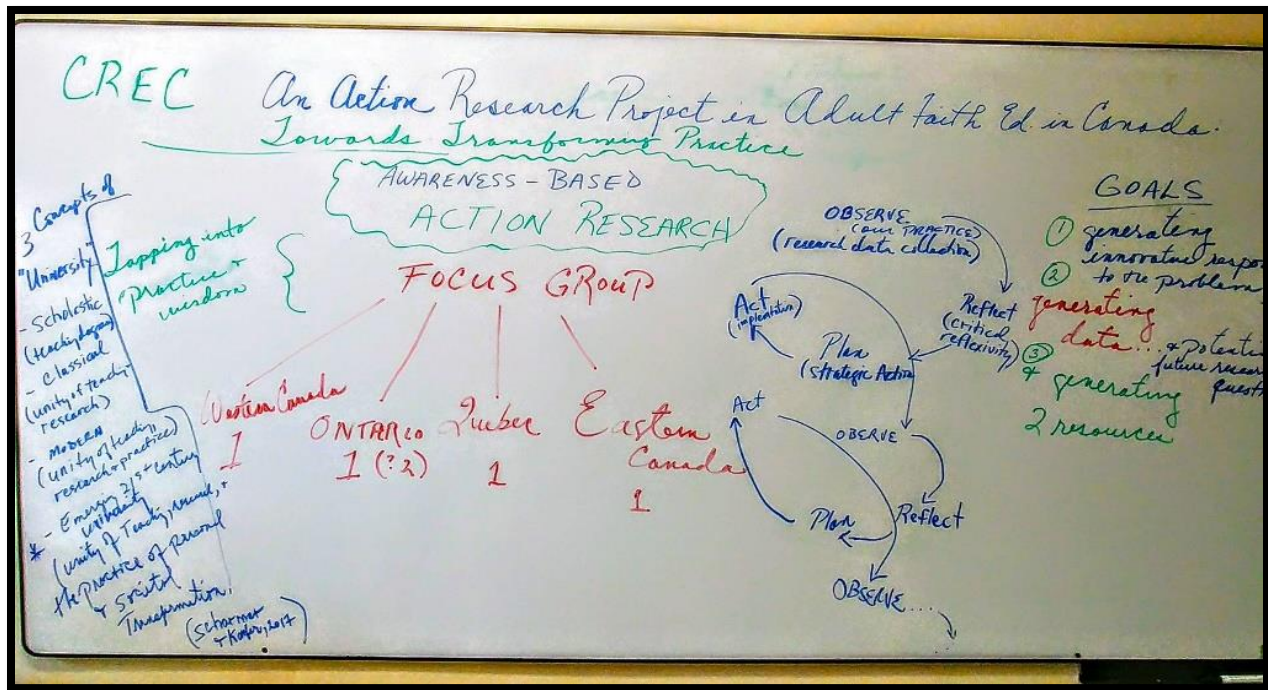 CREC An Action Research Project in Adult Faith Ed. in Canada.
Towards Transforming Practice
AWARENESS - BASED
ACTION RESEARCH
3 Concepts of
"University"
- Scholastic
(teaching)
- Classical
(unity of teaching
research)
- MODERN
(unity of teaching,
research + practice)
* - Emerging 21st century
(unity of Teaching, research, +
the practice of personal
+ societal
Transformation.
2017)
Tapping into
"practice +
wisdom
FOCUS GROUP
Western Canada
1
ONTARIO
1 (? 2)
Quebec
1
Eastern
Canada
1
OBSERVE
(OUR PRACTICE)
(research data collection)
Reflect
(critical
reflexivity)
Plan
(Strategic Action)
Act
(implementation)
OBSERVE
Reflect
Plan
Act
OBSERVE....
GOALS
① generating
innovative
to the problem
② generating
data... + 
future
③
+ generating
2 resources